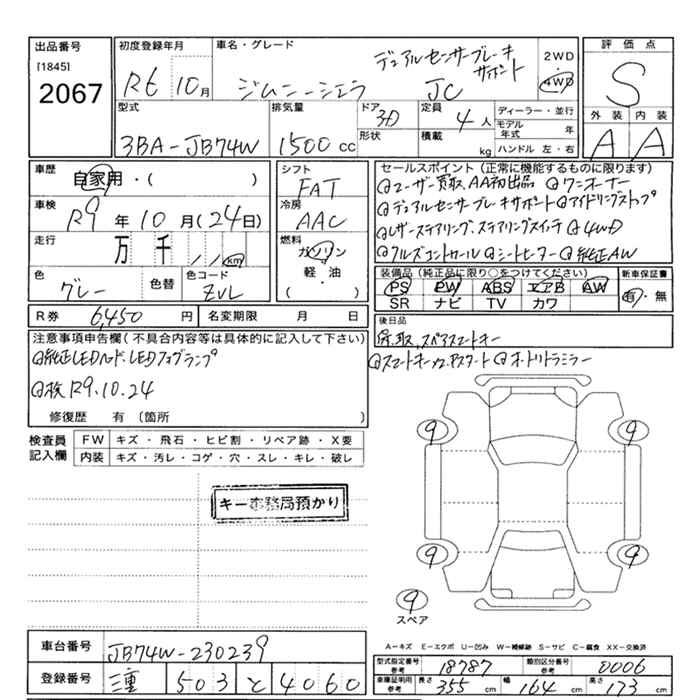 出品番号
[1845]
2067
初度登録年月
R6 10月
車名・グレード
デュアルセンサーブレーキ
サポート
ジムニーシエラ JC
2WD
・
4WD
評価点
S
外装 内装
A A
型式
3BA-JB74W
排気量
1500cc
ドア
3D
形状
定員
4人
積載 kg
ディーラー・並行
モデル年式 年
ハンドル 左・右
車歴
自家用・( )
車検
R9年10月(24日)
走行
万 千 11 km
色
グレー
色替
色コード
ZVL
シフト
FAT
冷房
AAC
燃料
ガソリン
・
軽・油
( )
セールスポイント (正常に機能するものに限ります)
ユーザー買取、AA初出品 ワンオーナー
デュアルセンサーブレーキサポート アイドリングストップ
レザーステアリング、ステアリングスイッチ 4WD
クルーズコントロール シートヒーター 純正AW
装備品 (純正品に限り○をつけてください)
PS PW ABS エアB AW
SR ナビ TV カワ
新車保証書
有・無
R券 6,450円
名変期限 月 日
後日品
保、取、スペアスマートキー
スマートキー プッシュスタート オートリトラミラー
注意事項申告欄(不具合内容等は具体的に記入して下さい)
純正LEDヘッド・LEDフォグランプ
検R9.10.24
修復歴 有 (箇所 )
検査員
記入欄
FW キズ・飛石・ヒビ割・リペア跡・X要
内装 キズ・汚レ・コゲ・穴・スレ・キレ・破レ
キー事務局預かり
9 9
9 9
9
スペア
A-キズ E-エクボ U-凹み W-補修跡 S-サビ C-腐食 XX-交換済
車台番号 JB74W-230239
登録番号 三重 503 と 4060
型式指定番号
参考
18787
類別区分番号
参考
0006
車庫証明用
参考
長さ 355cm 幅 164cm 高さ 173cm